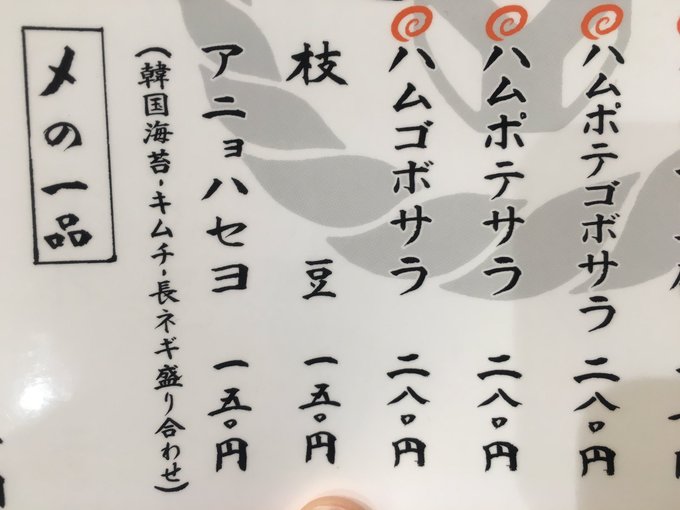 ハムポテゴボサラ 二八〇円
ハムポテサラ 二八〇円
ハムゴボサラ 二八〇円
枝豆 一五〇円
アニョハセヨ 一五〇円
(韓国海苔・キムチ・長ネギ盛り合わせ)
〆の一品